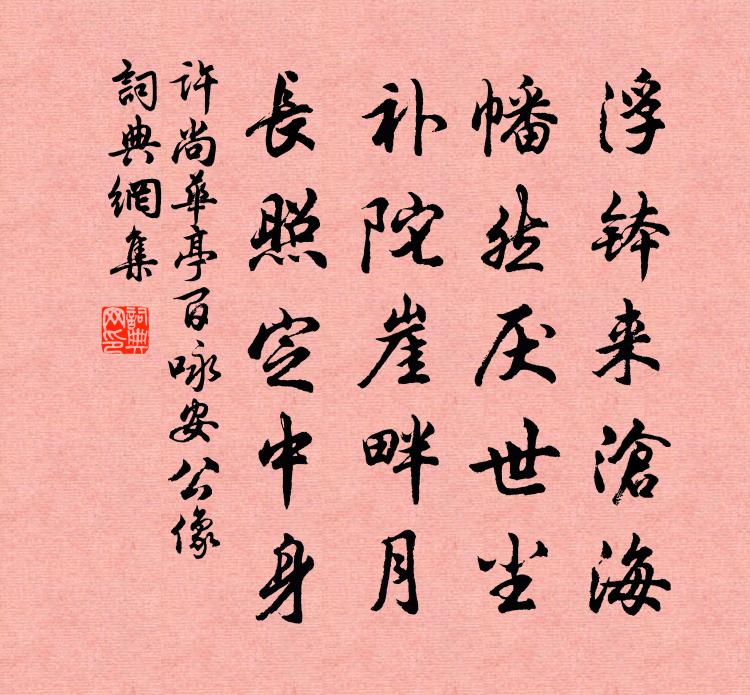 浮钵来滄海
幡然厌世尘
补陀崖畔月
長照定中身
许尚華亭百咏安公像
詞典網集
詞典网印